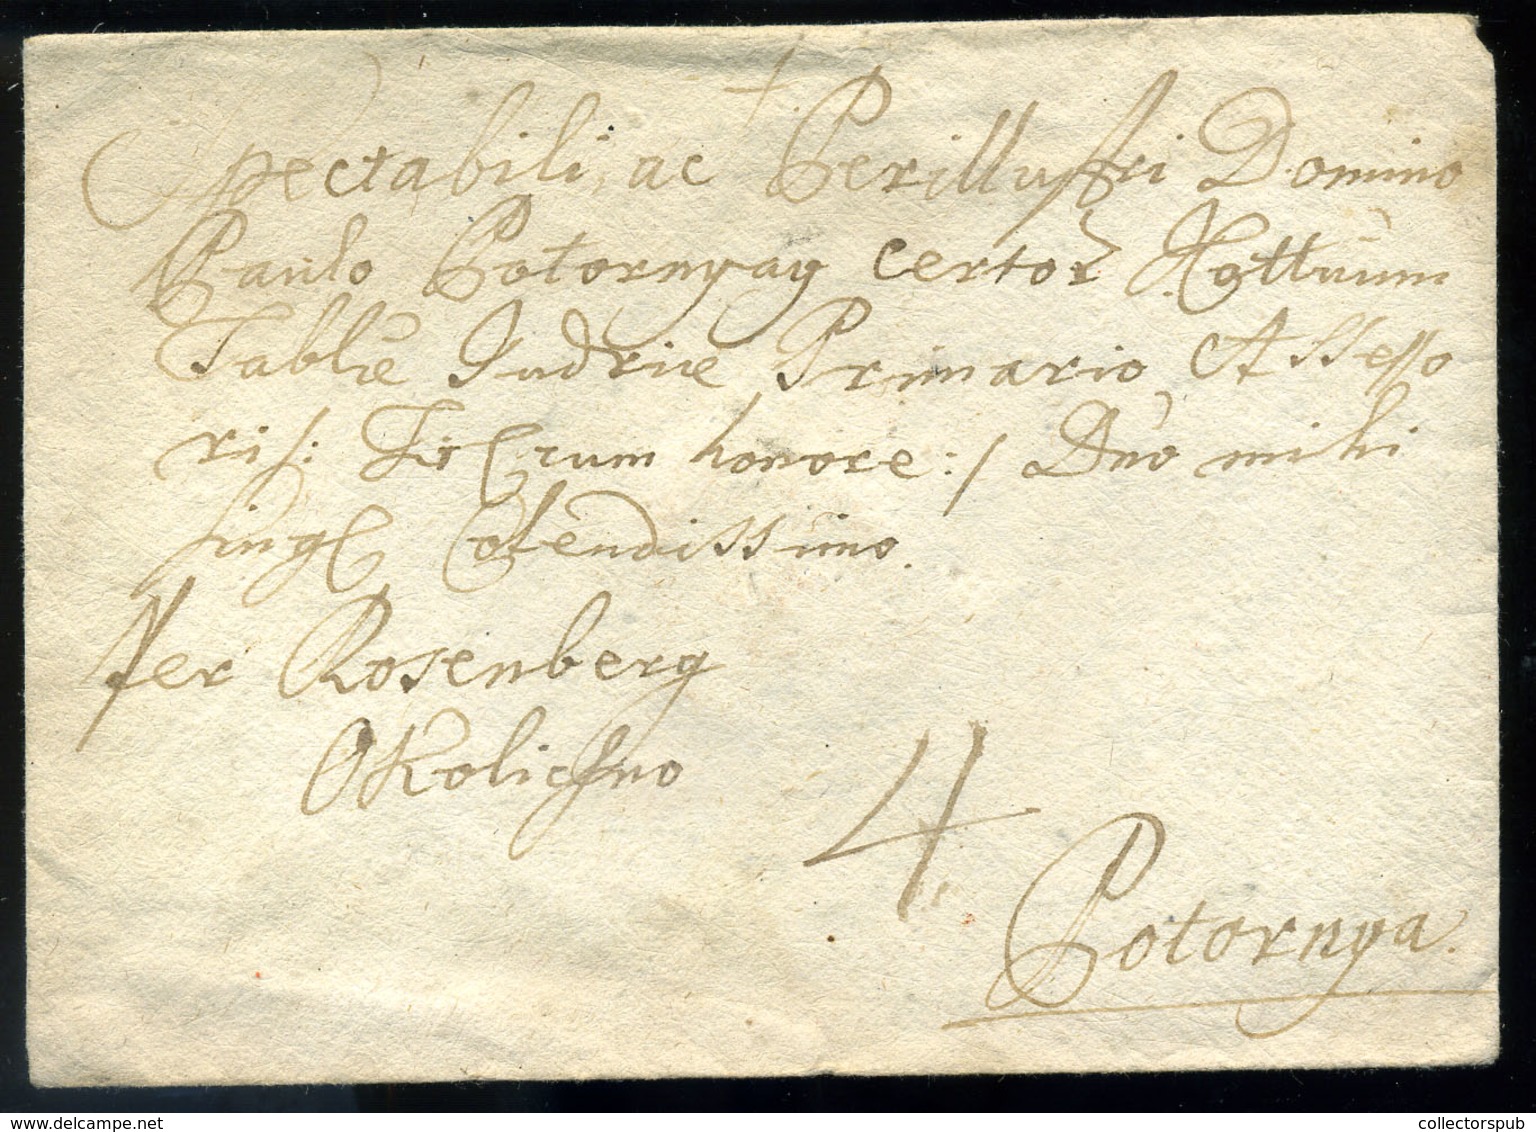 Spectabili, ac Perillustri Domino
Paulo Potornyay certor Cottuum
Tablæ Judriæ Primario Assesso
ri /: Tit. Crum honore :/ Dno mihi
sing Colendissimo.
Per Rosenberg
Okolicsno
4.
Potornya.
www.delcampe.net
collectorspub